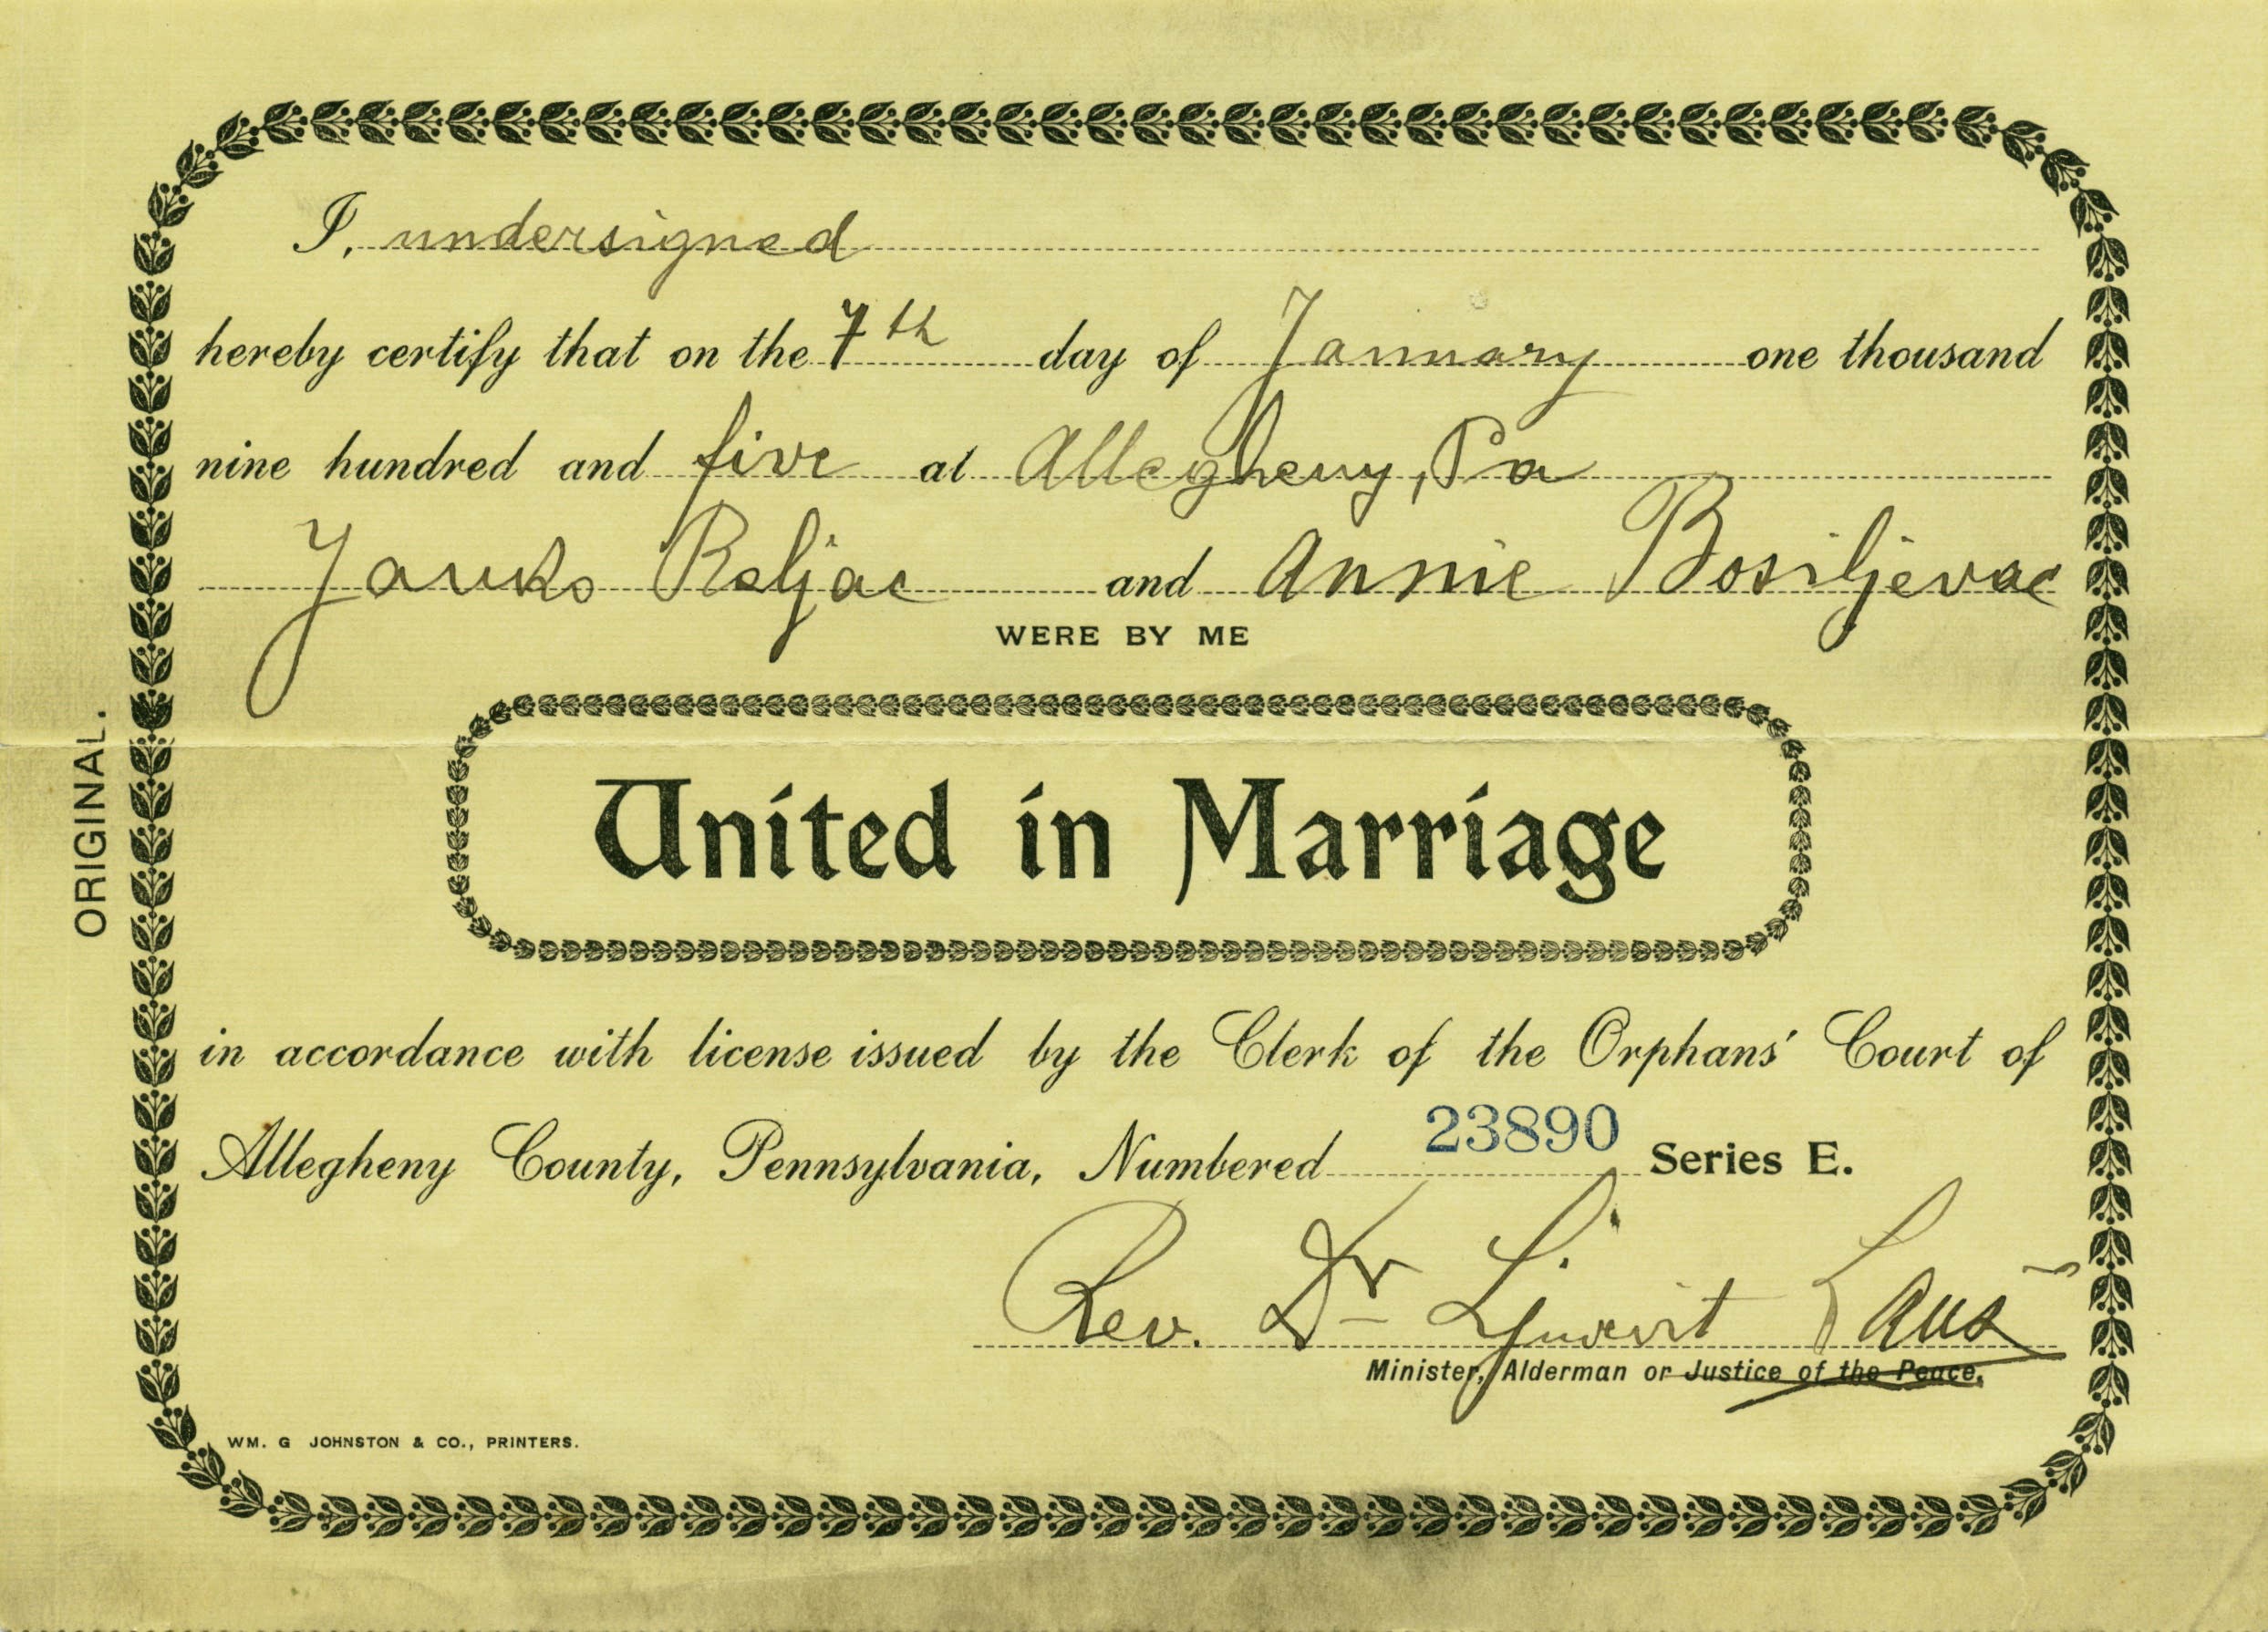 I, undersigned
hereby certify that on the 7th day of January one thousand
nine hundred and five at Allegheny, Pa
Janko Raljac and Annie Bosiljevac
WERE BY ME
United in Marriage
in accordance with license issued by the Clerk of the Orphans' Court of
Allegheny County, Pennsylvania, Numbered 23890 Series E.
Rev. Dr Ljudevit Laus
Minister, Alderman or Justice of the Peace.
WM. G JOHNSTON & CO., PRINTERS.
ORIGINAL.